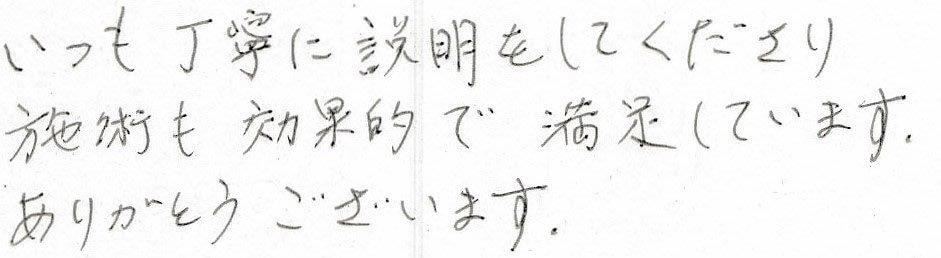 いつも丁寧に説明をしてくださり
施術も効果的で満足しています.
ありがとうございます.